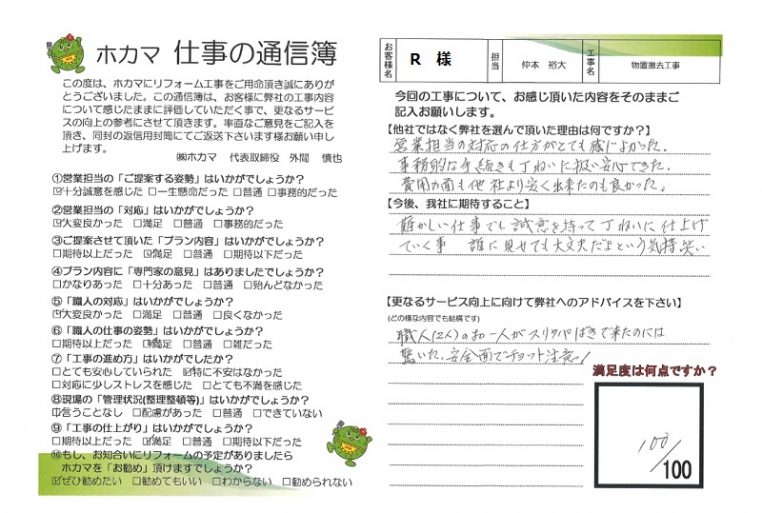 ホカマ 仕事の通信簿
この度は、ホカマにリフォーム工事をご用命頂き誠にありが
とうございました。この通信簿は、お客様に弊社の工事内容
について感じたままに評価していただく事で、更なるサービ
スの向上の参考にさせて頂きます。率直なご意見をご記入を
頂き、同封の返信用封筒にてご返送下さいます様お願い申し
上げます。
㈱ホカマ 代表取締役 外間 慎也
①営業担当の「ご提案する姿勢」はいかがでしょうか?
☑十分誠意を感じた □一生懸命だった □普通 □事務的だった
②営業担当の「対応」はいかがでしょうか?
☑大変良かった □満足 □普通 □事務的だった
③ご提案させて頂いた「プラン内容」はいかがでしょうか?
□期待以上だった ☑満足 □普通 □期待以下だった
④プラン内容に「専門家の意見」はありましたでしょうか?
□かなりあった □十分あった □普通 □殆んどなかった
⑤「職人の対応」はいかがでしょうか?
☑大変良かった □満足 □普通 □良くなかった
⑥「職人の仕事の姿勢」はいかがでしょうか?
□期待以上だった ☑満足 □普通 □雑だった
⑦「工事の進め方」はいかがでしたか?
□とても安心していられた ☑特に不安はなかった
□対応に少しストレスを感じた □とても不満を感じた
⑧現場の「管理状況(整理整頓等)」はいかがでしょうか?
☑言うことなし □配慮があった □普通 □できていない
⑨「工事の仕上がり」はいかがでしょうか?
□期待以上だった ☑満足 □普通 □期待以下だった
⑩もし、お知合いにリフォームの予定がありましたら
ホカマを「お勧め」頂けますでしょうか?
☑ぜひ勧めたい □勧めてもいい □わからない □勧められない
お客様名 R 様 担当 仲本 裕大 工事名 物置撤去工事
今回の工事について、お感じ頂いた内容をそのままご
記入お願いします。
【他社ではなく弊社を選んで頂いた理由は何ですか?】
営業担当の対応の仕方がとても感じよかった。
事務的な手続きも丁ねいに扱い安心できた。
費用力面も他社より安く出来たのも良かった。
【今後、我社に期待すること】
難かしい仕事でも誠意を持って丁ねいに仕上げ
ていく事 誰に見せても大丈夫だよという気持笑い
【更なるサービス向上に向けて弊社へのアドバイスを下さい】
(どの様な内容でも結構です)
職人(2人)のお一人がスリッパばきで来たのには
驚いた。安全面でチョット注意!
満足度は何点ですか?
100/100